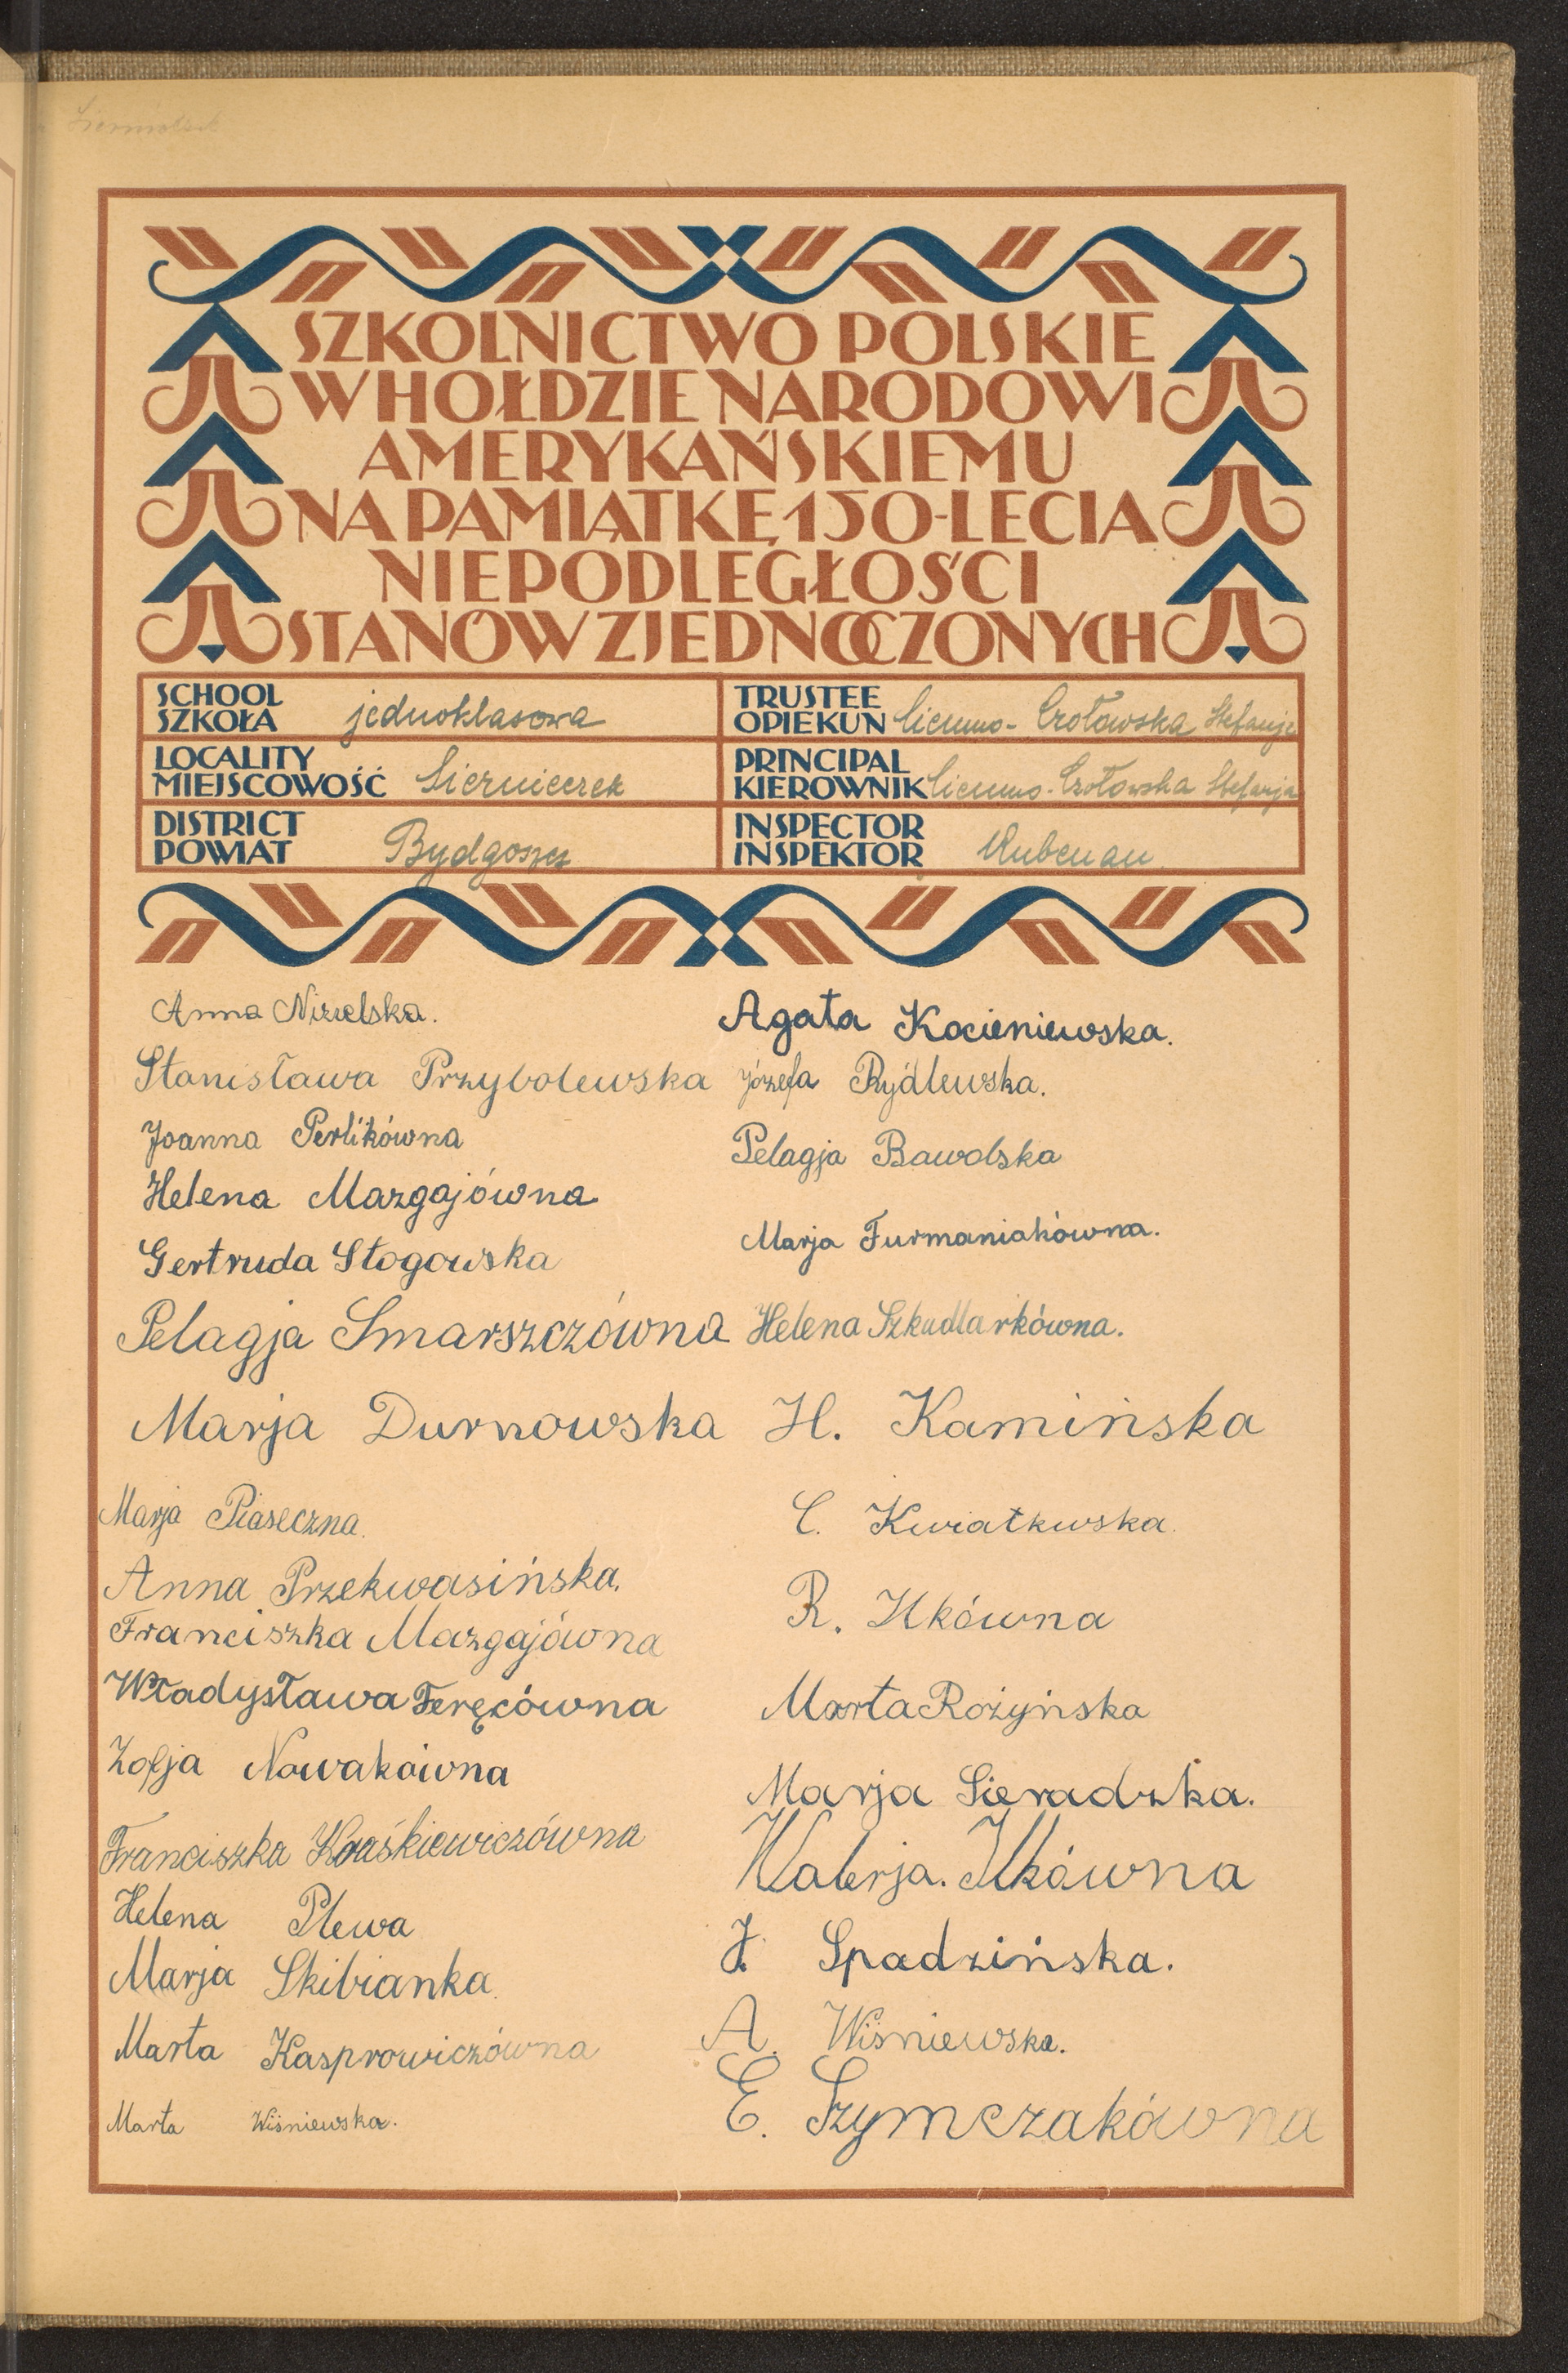 SZKOLNICTWO POLSKIE
W HOŁDZIE NARODOWI
AMERYKAŃSKIEMU
NA PAMIĄTKĘ 150-LECIA
NIEPODLEGŁOŚCI
STANÓW ZJEDNOCZONYCH
SCHOOL
SZKOŁA jednoklasowa
TRUSTEE
OPIEKUN Ciemno-Czołowska Stefanja
LOCALITY
MIEJSCOWOŚĆ Siernieczek
PRINCIPAL
KIEROWNIK Ciemno-Czołowska Stefanja
DISTRICT
POWIAT Bydgoszcz
INSPECTOR
INSPEKTOR
Anna
Stanisława Przybolewska
Joanna Perlikówna
Helena Mazgajówna
Gertruda Stogowska
Pelagja Smarszczówna
Marja Durnowska
Marja Piaseczna.
Anna Przekwasińska.
Franciszka Mazgajówna
Władysława Feręcówna
Zofja Nowakówna
Franciszka
Helena Plewa
Marja Skibianka.
Marta Kasprowiczówna
Marta Wiśniewska.
Agata Kocieniewska.
Józefa Rydlewska.
Pelagja Bawolska
Marja Furmaniakówna.
Helena Szkudlarkówna.
H. Kamińska
C. Kwiatkwska.
R. Ilkówna
Marta Rożyńska
Marja Sieradzka.
Walerja. Ilkówna
J. Spadzińska.
A. Wiśniewska.
E. Szymczakówna